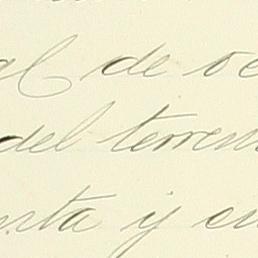 al de oc
del terren
nta y en